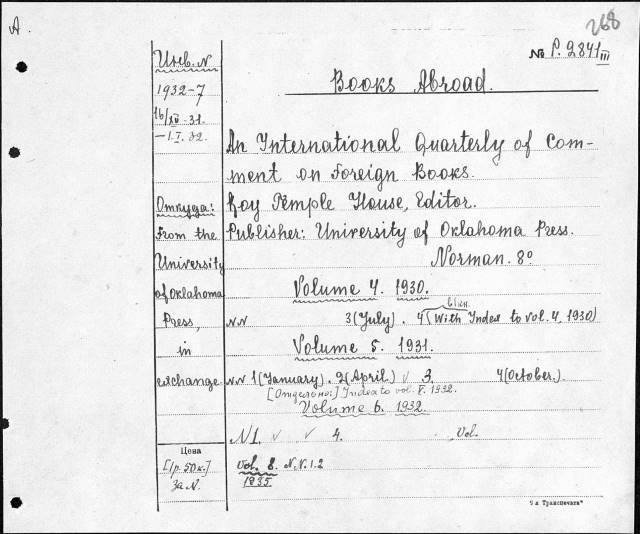 A.
268
№ P. 2841 III
Инв. N
1932-7
16/XII-31.
-1.I.32.
Откуда:
From the
University
of Oklahoma
Press,
in
exchange.
Цена
[1р. 50к.]
за N.
Books Abroad.
An International Quarterly of Com-
ment on Foreign Books.
Roy Temple House, Editor.
Publisher: University of Oklahoma Press.
Norman. 8°
Volume 4. 1930.
в 1 кн.
NN 3 (July). 4 (With Index to vol. 4, 1930)
Volume 5. 1931.
NN 1 (January). 2 (April) ✓ 3. 4 (October.).
[Отдельно:] Index to vol. V. 1932.
Volume 6. 1932.
N 1. ✓ ✓ 4. Vol.
Vol. 8. N.N. 1.2
1935.
9-я Транспечать"